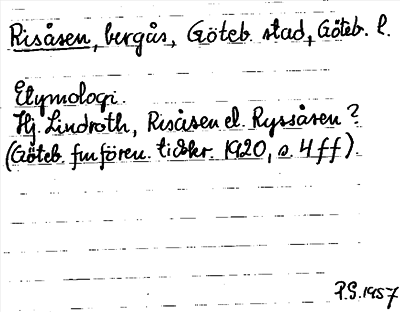 Risåsen, bergås, Göteb. stad, Göteb. l.
Etymologi.
Hj. Lindroth, Risåsen el. Ryssåsen?
(Göteb. fmfören. tidskr. 1920, s. 4 ff).
P.S. 1957